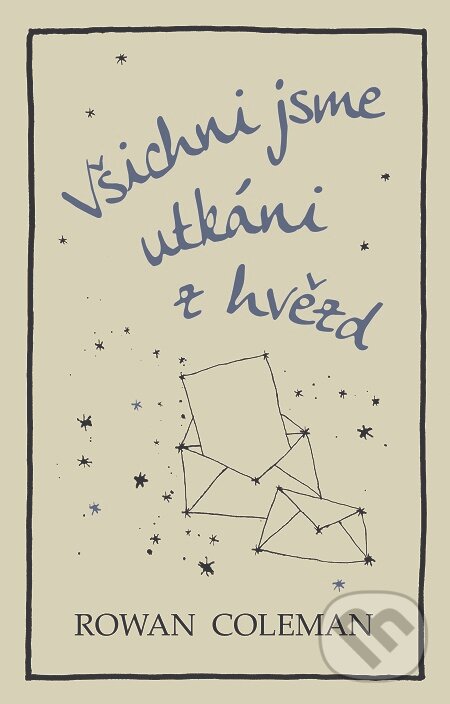 Všichni jsme
utkáni
z hvězd
ROWAN COLEMAN